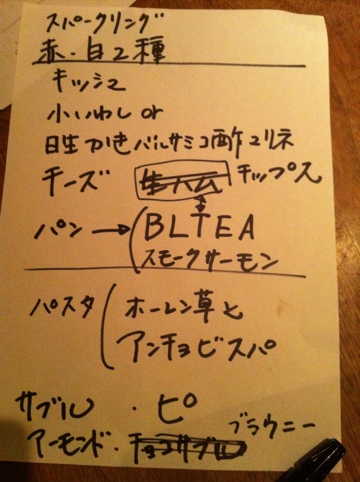 スパークリング
赤・白2種
キッシュ
小いわし or
日生かきバルサミコ酢マリネ
チーズ 生ハム チップス
パン→ BLTEA
スモークサーモン
パスタ ホーレン草と
アンチョビスパ
サブル ・ピ
アーモンド・チョコサブル ブラウニー